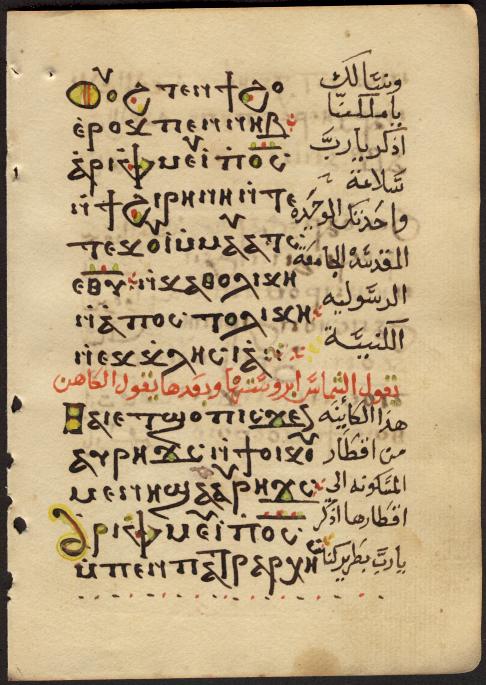 Ⲟⲩⲟϩ ⲧⲉⲛϯϩⲟ
ⲉⲣⲟⲕ ⲡⲉⲛⲛⲏⲃ
ⲁⲣⲓⲫⲙⲉⲩⲓ ⲡⲟⲥ
ⲛϯϩⲓⲣⲏⲛⲏ ⲛⲧⲉ
ⲧⲉⲕⲟⲩⲓ ⲙⲙⲁⲩⲁⲧⲥ
ⲉⲑⲩ ⲛⲕⲁⲑⲟⲗⲓⲕⲏ
ⲛⲁⲡⲟⲥⲧⲟⲗⲓⲕⲏ
ⲛⲉⲕⲕⲗⲏⲥⲓⲁ
ونسالك
يا ملكنا
اذكر يا رب
سلامة
واحدتك الوحيده
المقدسة الجامعة
الرسوليه
الكنيسة
يقول الشماس وبعدها يقول الكاهن
Ⲑⲁⲓ ⲉⲧϣⲟⲡ ⲓⲥϫⲉⲛ
ⲁⲩⲣⲏϫⲥ ⲛϯⲟⲓⲕⲟⲩ
ⲙⲉⲛⲏ ϣⲁ ⲁⲩⲣⲏϫⲥ
Ⲁⲣⲓⲫⲙⲉⲩⲓ ⲡⲟⲥ
ⲙⲡⲉⲛⲡⲁⲧⲣⲓⲁⲣⲭⲏⲥ
هذا الكاينه
من اقطار
المسكونه الي
اقطارها اذكر
يا رب بطريركنا